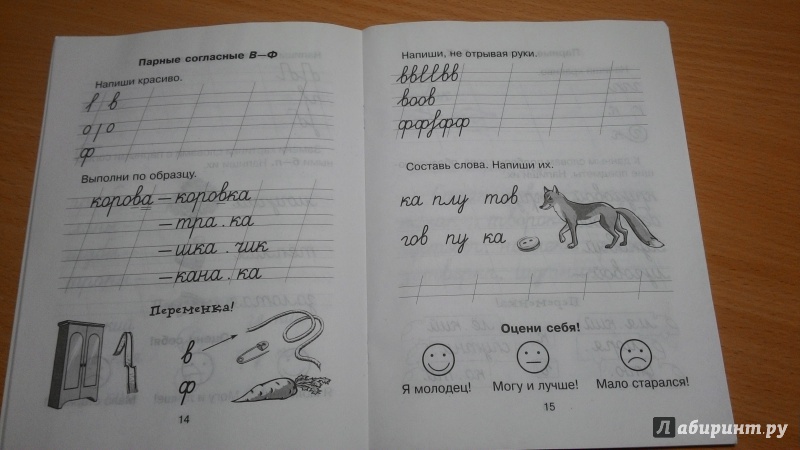 Парные согласные В—Ф
Напиши красиво.
в в
о / о
ф
Выполни по образцу.
корова – коровка
– тра . ка
– шка . чик
– кана . ка
Переменка!
в
ф
14
Напиши, не отрывая руки.
вввввв
воов
ффффф
Составь слова. Напиши их.
ка плу тов
гов пу ка
Оцени себя!
Я молодец! Могу и лучше! Мало старался!
15
Лабиринт.ру